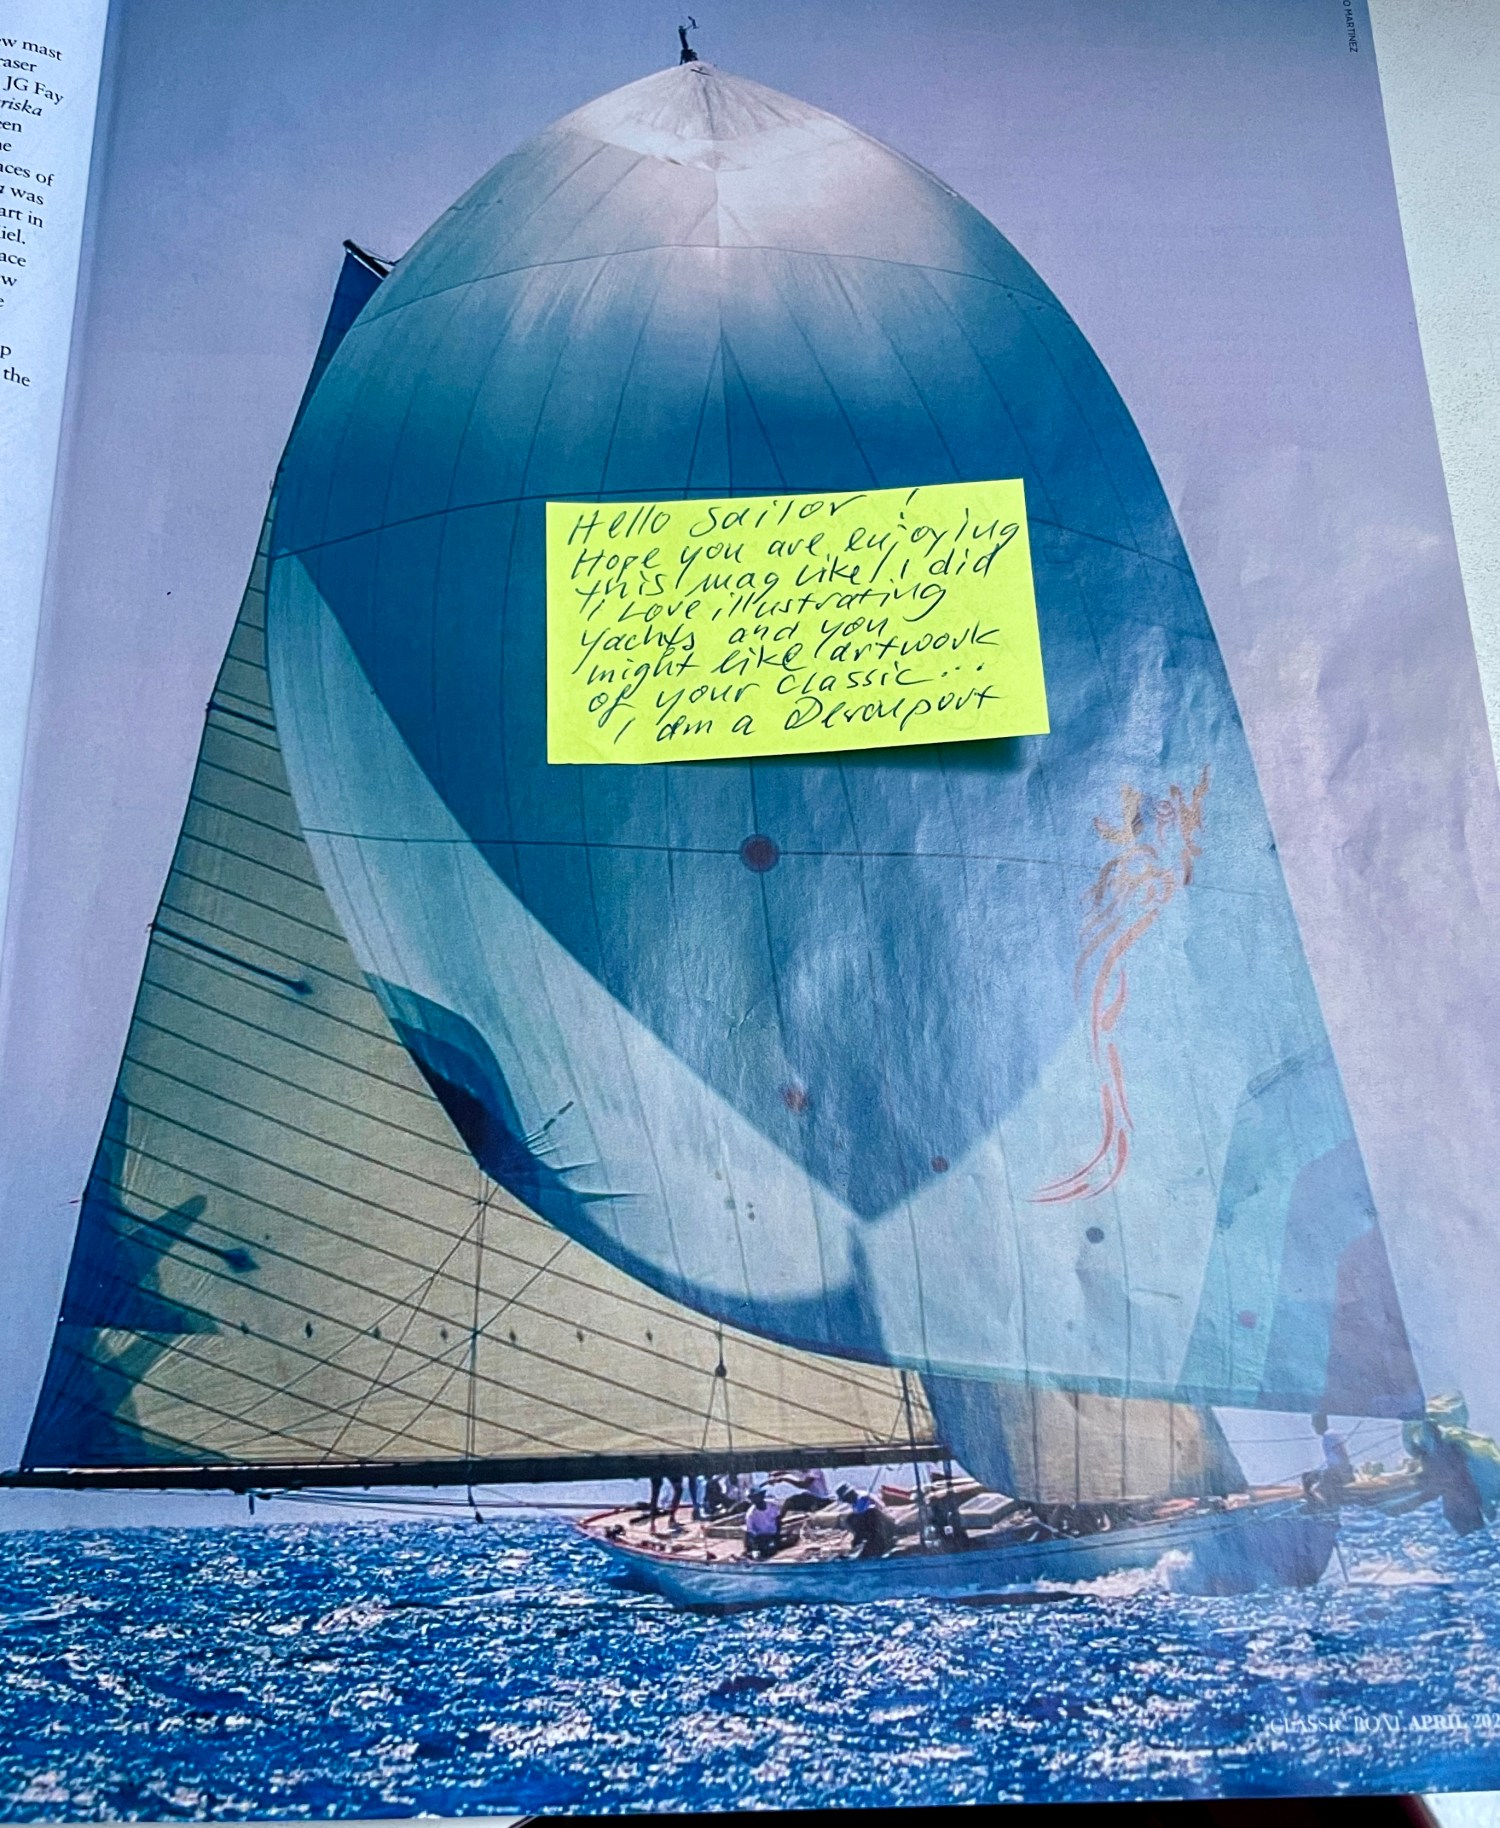 ew mast
raser
JG Fay
riska
een
e
aces of
a was
art in
iel.
ace
w
e
p
the
O MARTINEZ
Hello Sailor !
Hope you are enjoying
this mag like I did
I Love illustrating
Yachts and you
might like artwork
of your classic...
I am a Devonport
CLASSIC BOAT APRIL 202